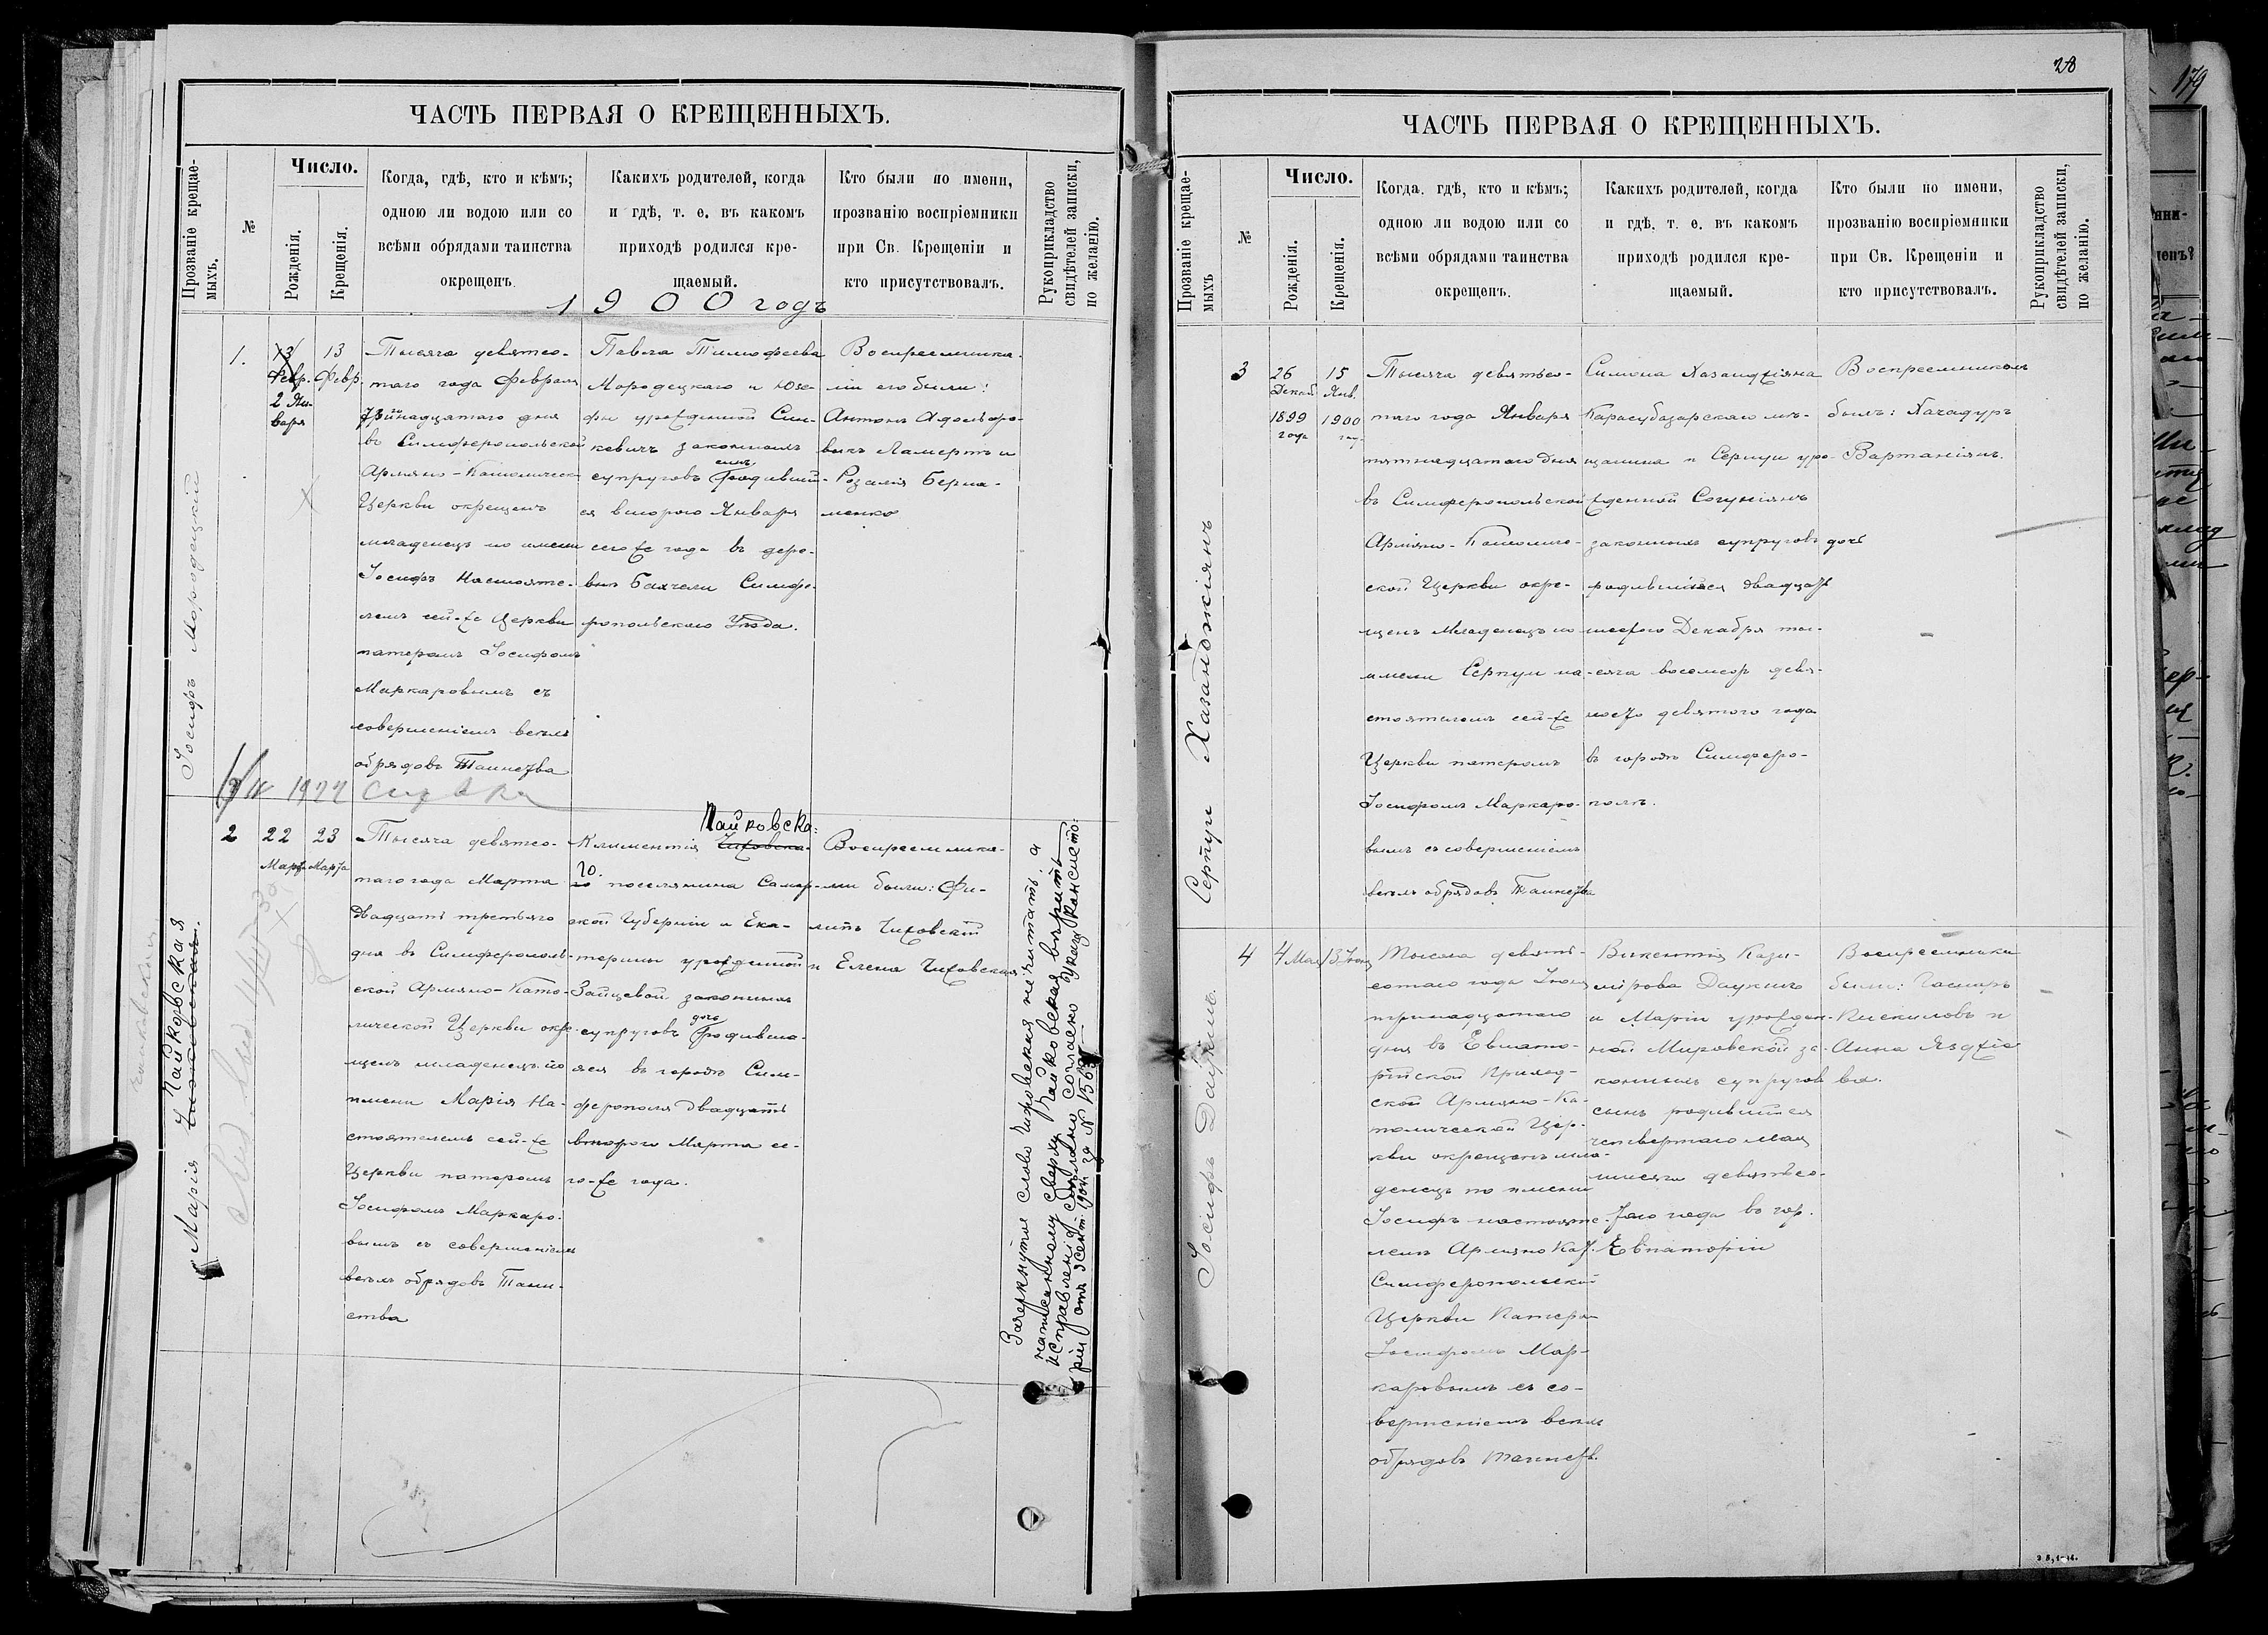 28
179
ЧАСТЬ ПЕРВАЯ О КРЕЩЕННЫХЪ.
Прозваніе крещае-
мыхъ.
№
Число.
Рожденія.
Крещенія.
Когда, гдѣ, кто и кѣмъ;
одною ли водою или со
всѣми обрядами таинства
окрещенъ.
Какихъ родителей, когда
и гдѣ, т. е. въ какомъ
приходѣ родился кре-
щаемый.
Кто были по имени,
прозванію воспріемники
при Св. Крещеніи и
кто присутствовалъ.
Рукоприкладство
свидѣтелей записки,
по желанію.
1900 годъ
Іосифъ Мородецкій
1.
13
Февр.
2 Ян-
варя
13
Февр.
Тысяча девятсо-
таго года Февраля
Тринадцатаго дня
въ Симферопольской
Армяно-Католическ
Церкви окрещенъ
младенецъ по имени
Іосифъ Настояте-
лемъ сей-же Церкви
патеромъ Іосифомъ
Маркаровымъ съ
совершеніемъ всѣхъ
обрядовъ Таинства
Павла Тимофеева
Мородецкаго и Юзе-
фы урожденной Син-
кевичъ законныхъ
супруговъ сынъ родивший-
ся второго Января
сего же года въ дере-
внѣ Бахчели Симфе-
ропольскаго Уѣзда.
Воспреемника-
ми его были:
Антонъ Адольфо-
вичъ Ламертъ и
Розалія Берна-
ленко
1922
Марія Чайковская
Чижовская.
2
22
Марта
23
Марта
Тысяча девятсо-
таго года Марта
двадцать третьяго
дня въ Симферополь-
ской Армяно-Като-
лической Церкви окре-
щенъ младенецъ по
имени Марія На-
стоятелемъ сей-же
Церкви патеромъ
Іосифомъ Маркаро-
вымъ съ совершеніемъ
всѣхъ обрядовъ Таин-
ства
Чайковска:
Климентія Чижовска-
го.
го поселянина Самар-
ской Губерніи и Ека-
терины урожденной
Зайцевой законныхъ
супруговъ дочь родивша-
яся въ городѣ Сим-
ферополя двадцать
второго Марта се-
го-же года.
Воспреемника-
ми были: Фи-
липъ Чижовскій
и Елена Чижовская
Зачеркнутое слово Чижовская не читать а
написанному сверху Чайковская вѣрить
исправленіе сдѣлано согласно Указу Консисто:
ріи отъ
ЧАСТЬ ПЕРВАЯ О КРЕЩЕННЫХЪ.
Прозваніе крещае-
мыхъ
№
Число.
Рожденія.
Крещенія.
Когда. гдѣ, кто и кѣмъ;
одною ли водою или со
всѣми обрядами таинства
окрещенъ.
Какихъ родителей, когда
и гдѣ, т. е. въ какомъ
приходѣ родился кре-
щаемый.
Кто были по имени,
прозванію воспріемники
при Св. Крещеніи и
кто присутствовалъ.
Рукоприкладство
свидѣтелей записки,
по желанію.
Серпуи Хазанджіянъ
3
26
Декаб.
1899
года
15
Янв.
1900
Тысяча девятьсо-
таго года Января
пятнадцатаго дня
въ Симферопольской
Армяно-Католиче-
ской Церкви окре-
щенъ Младенецъ по
имени Серпуи на-
стоятелемъ сей-же
Церкви патеромъ
Іосифомъ Маркаро-
вымъ съ совершеніемъ
всѣхъ обрядовъ Таинства
Симона Хазанджіяна
Карасубазарскаго мѣ-
щанина и Серпуи уро-
жденной Согуніянъ
законныхъ супруговъ дочь
родившаяся двадцать
шестого Декабря ты-
сяча восемсот девя-
носто девятого года
въ городѣ Симферо-
полѣ.
Воспреемникомъ
былъ: Хачадуръ
Вартаніянъ.
Іосифъ Даукшъ.
4
4 Мая
13 Іюня
Тысяча девять-
сотаго года Іюня
тринадцатаго
дня въ Евпато-
рійской Приход-
ской Армяно-Ка-
толической Цер-
кви окрещенъ мла-
денецъ по имени
Іосифъ настояте-
лемъ Армяно Кат.
Симферопольской
Церкви Патеромъ
Іосифомъ Мар-
каровымъ съ со-
вершеніемъ всѣхъ
обрядовъ таинств.
Викентія Кази-
мірова Даукшъ
и Маріи урожден-
ной Мировской за-
конныхъ супругов
сынъ родившійся
четвертаго мая
тысяча девятьсо-
таго года въ гор.
Евпаторіи
Воспреемники
были: Гаспаръ
Кискиловъ и
Анна Язджіе
ва.